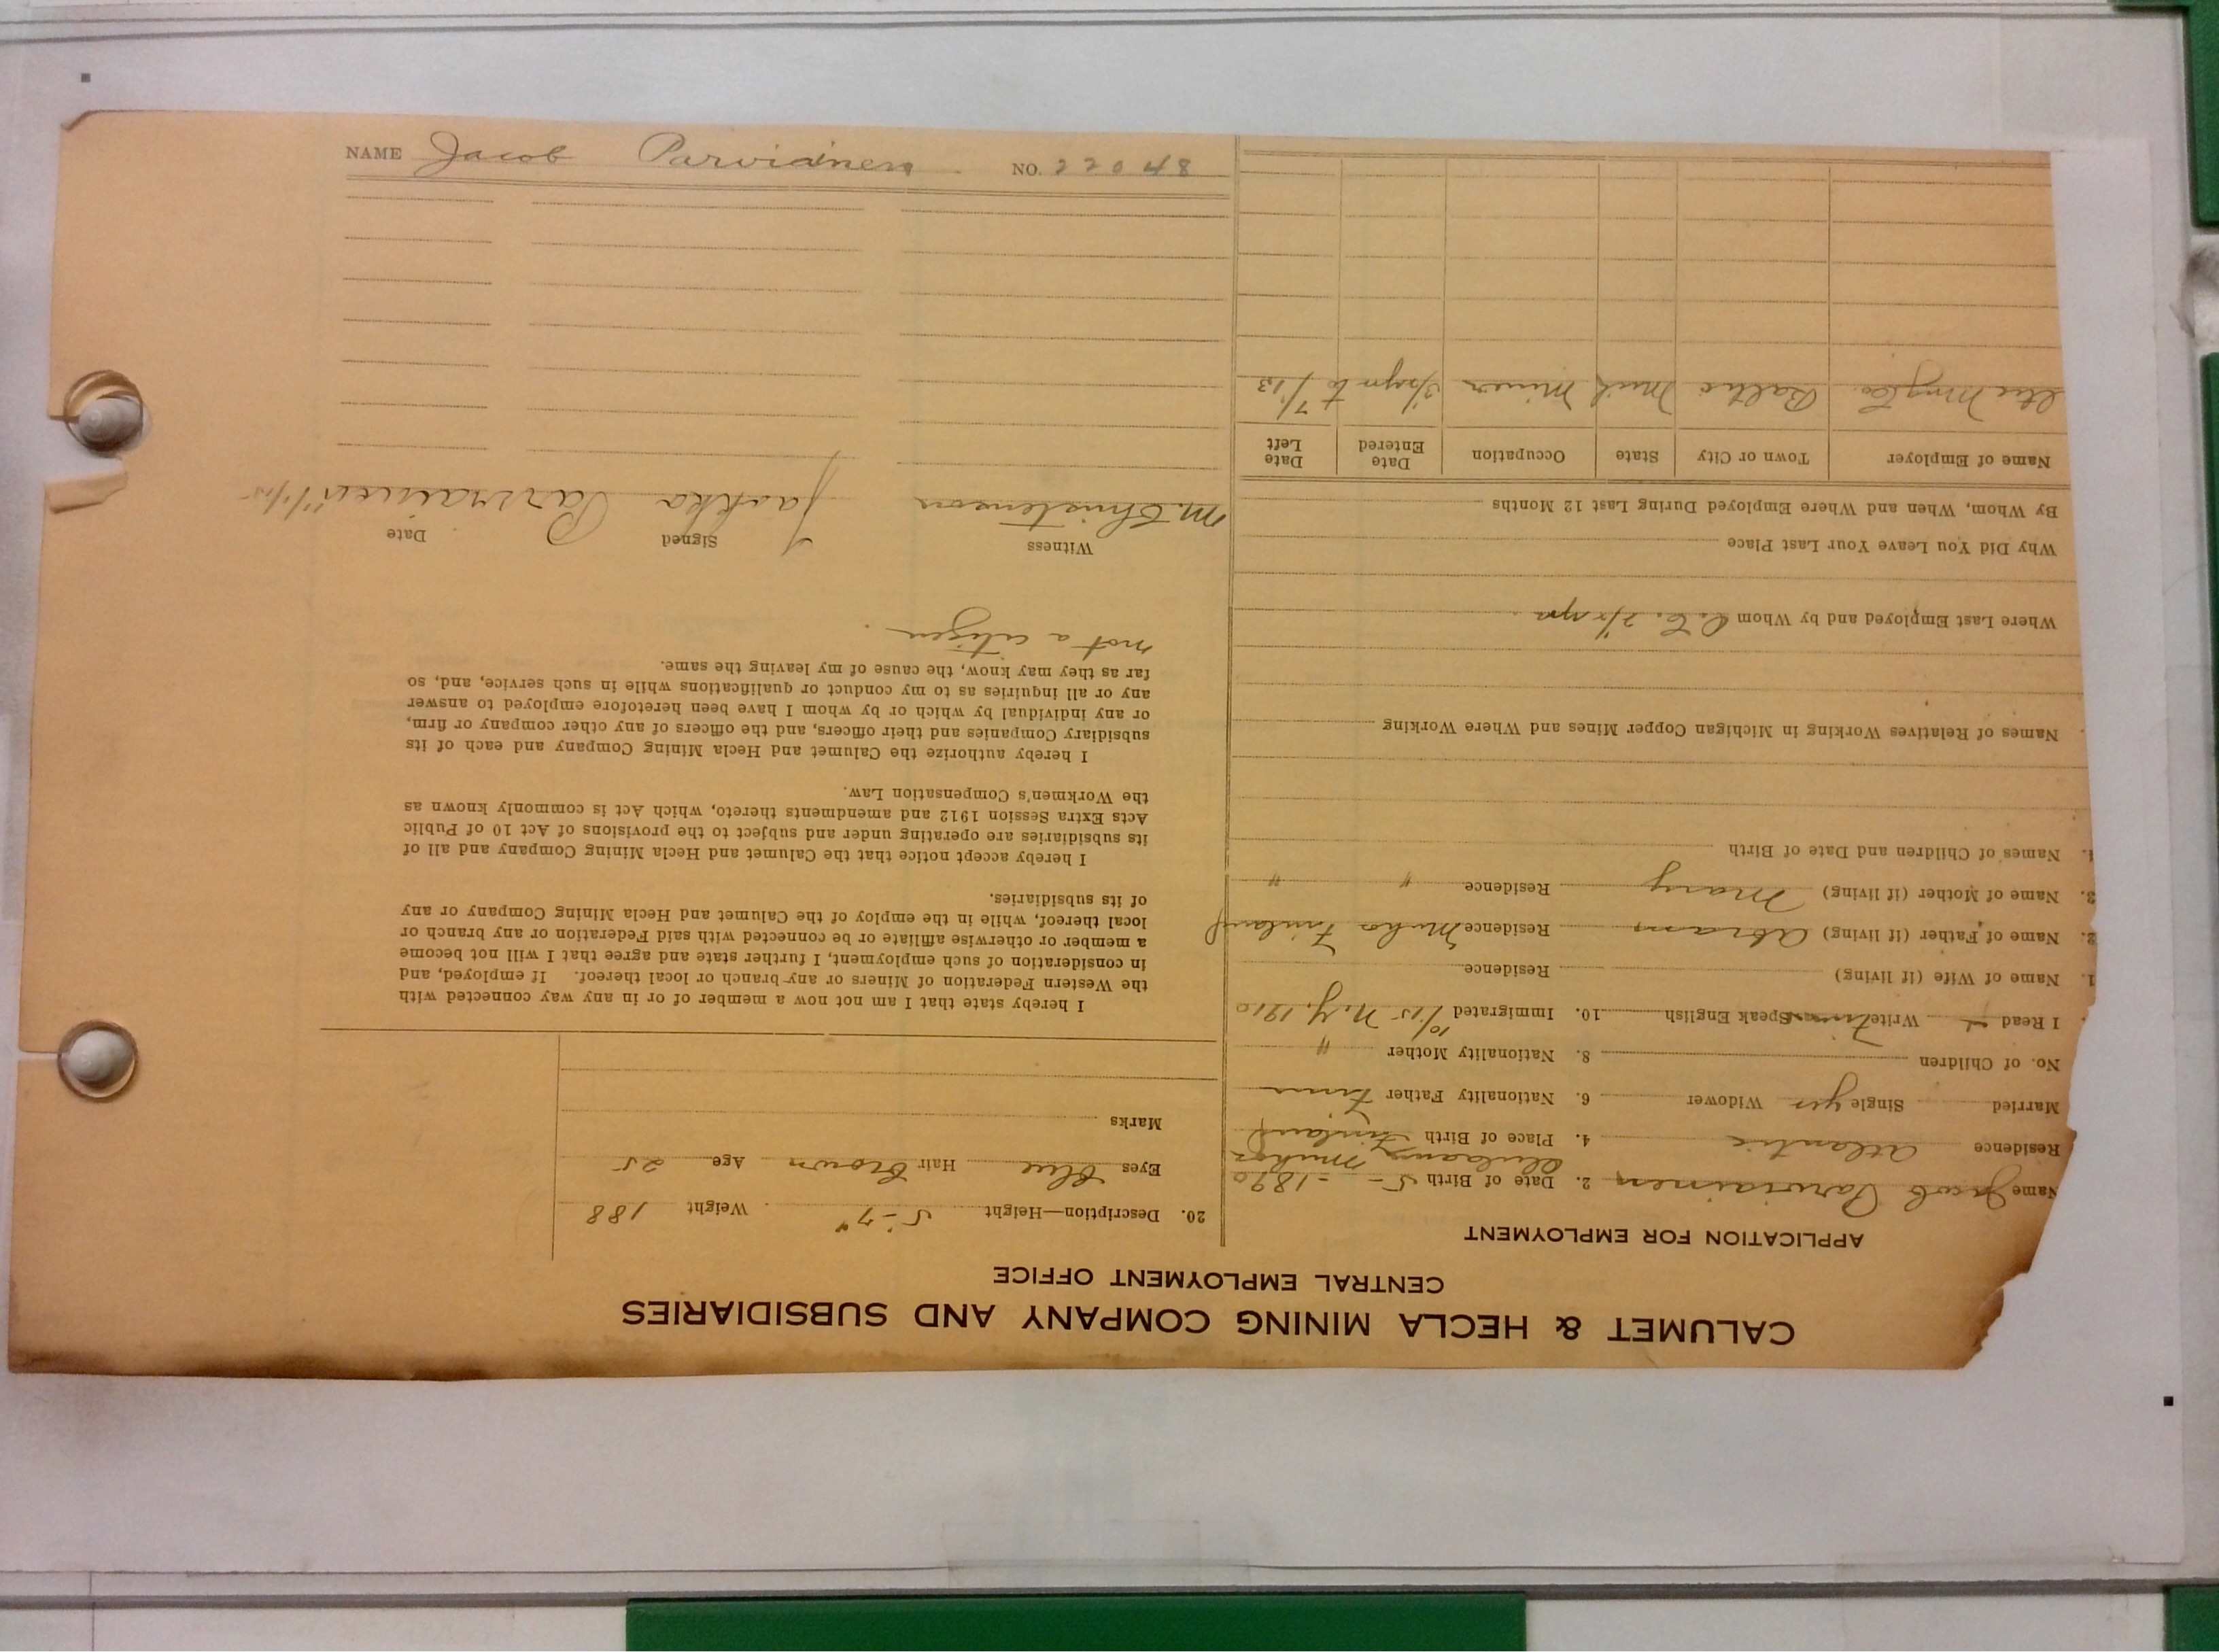 CALUMET & HECLA MINING COMPANY AND SUBSIDIARIES
CENTRAL EMPLOYMENT OFFICE
APPLICATION FOR EMPLOYMENT
Name Jacob Parviainen 2. Date of Birth 5 - - 1890
Residence Atlantic 4. Place of Birth Muhos Finland
Married Single yes Widower 6. Nationality Father Finn
No. of Children 8. Nationality Mother "
I Read Write Finn Speak English 10. Immigrated 10/15 N.Y. 1910
1. Name of Wife (if living) Residence
2. Name of Father (if living) Abram Residence Muho Finland
3. Name of Mother (if living) Mary Residence " "
4. Names of Children and Date of Birth
Names of Relatives Working in Michigan Copper Mines and Where Working
Where Last Employed and by Whom
Why Did You Leave Your Last Place
By Whom, When and Where Employed During Last 12 Months
Name of Employer Town or City State Occupation Date Entered Date Left
Baltic Mich Miner to 7/13
20. Description—Height 5-7" Weight 188
Eyes Blue Hair Brown Age 25
Marks
I hereby state that I am not now a member of or in any way connected with
the Western Federation of Miners or any branch or local thereof. If employed, and
in consideration of such employment, I further state and agree that I will not become
a member or otherwise affiliate or be connected with said Federation or any branch or
local thereof, while in the employ of the Calumet and Hecla Mining Company or any
of its subsidiaries.
I hereby accept notice that the Calumet and Hecla Mining Company and all of
its subsidiaries are operating under and subject to the provisions of Act 10 of Public
Acts Extra Session 1912 and amendments thereto, which Act is commonly known as
the Workmen's Compensation Law.
I hereby authorize the Calumet and Hecla Mining Company and each of its
subsidiary Companies and their officers, and the officers of any other company or firm,
or any individual by which or by whom I have been heretofore employed to answer
any or all inquiries as to my conduct or qualifications while in such service, and, so
far as they may know, the cause of my leaving the same.
not a citizen.
Witness Signed Date
M. Christenson Jaakko Parviainen
NAME Jacob Parviainen NO. 22048